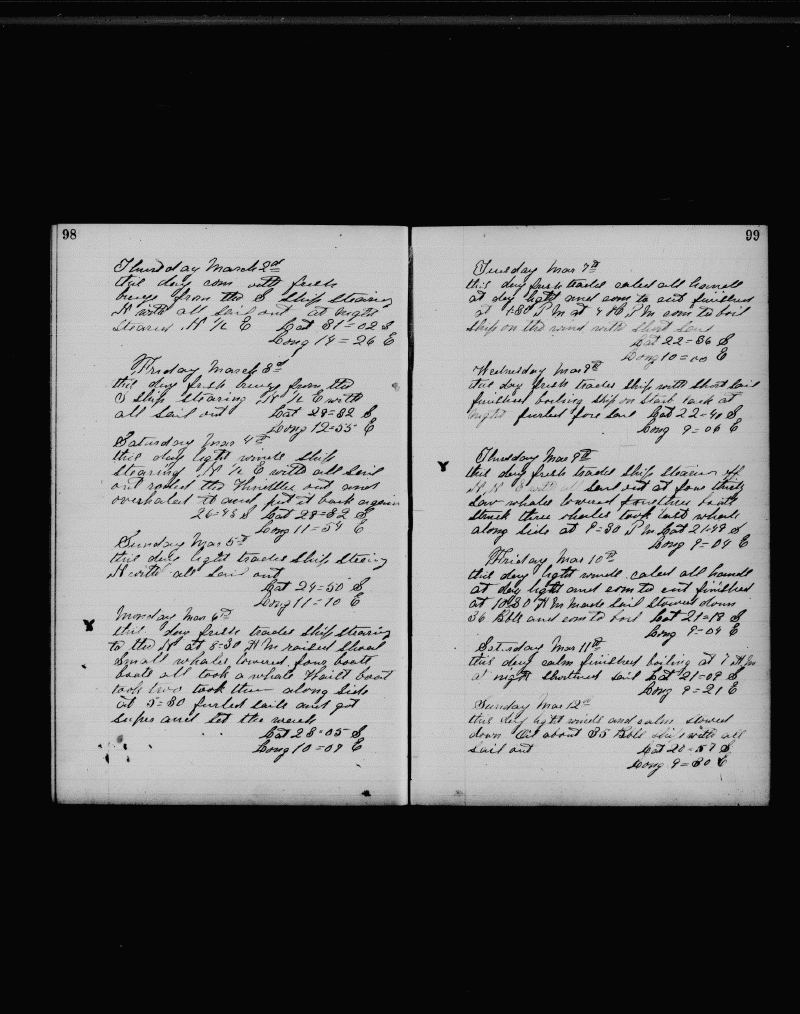 98
Thursday March 2nd
this day com with fresh
breeze from the S Ship Stearing
N with all Sail out at night
Steared N ½ E Lat 31=02 S
Long 14=26 E
Friday March 3d
this day fresh breeze from the
S Ship Stearing N ½ E with
all Sail out Lat 29=32 S
Long 12=55 E
Saturday Mar 4th
this day light winds Ship
Stearing N ½ E with all Sail
out the out and
overhaled it and put it back again
26=43 S Lat 28=32 S
Long 11=54 E
Sunday Mar 5th
this day light trades Ship Steering
N with all Sail out
Lat 24=50 S
Long 11=10 E
Monday Mar 6th
this day fresh trades Ship Stearing
to the N at 5=30 A M raised Shoal
Small whales lowered four boats
boats all took a whale Waist boat
took two took them along Side
at 5=30 furled sails and got
super and set the watch
Lat 23=05 S
Long 10=09 E
99
Tuesday Mar 7th
this day fresh trades caled all hands
at day light and com to cut finished
at 1=30 P M at 4 P M com to boil
Ship on the wind with Short Sail
Lat 22=36 S
Long 10=00 E
Wednesday Mar 8th
this day fresh trades Ship with Short Sail
finished boiling Ship on Starb tack at
night furled fore Sail Lat 22=40 S
Long 9=06 E
Thursday Mar 9th
this day fresh trades Ship Stearing off
N N E with all Sail out at four thirty
Saw whales lowered boats
Struck three whales took last whale
along Side at 9=30 P M Lat 21=49 S
Long 9=04 E
Friday Mar 10th
this day light winds caled all hands
at day light and com to cut finished
at 10=30 A M made Sail Stowed down
36 Bbls and com to boil Lat 21=18 S
Long 9=04 E
Saturday Mar 11th
this day calm finished boiling at 7 A M
at night Shortned Sail Lat 21=09 S
Long 9=21 E
Sunday Mar 12th
this day light winds and calm Stowed
down about 85 Bbls Ship with all
Sail out Lat 20=57 S
Long 9=30 E